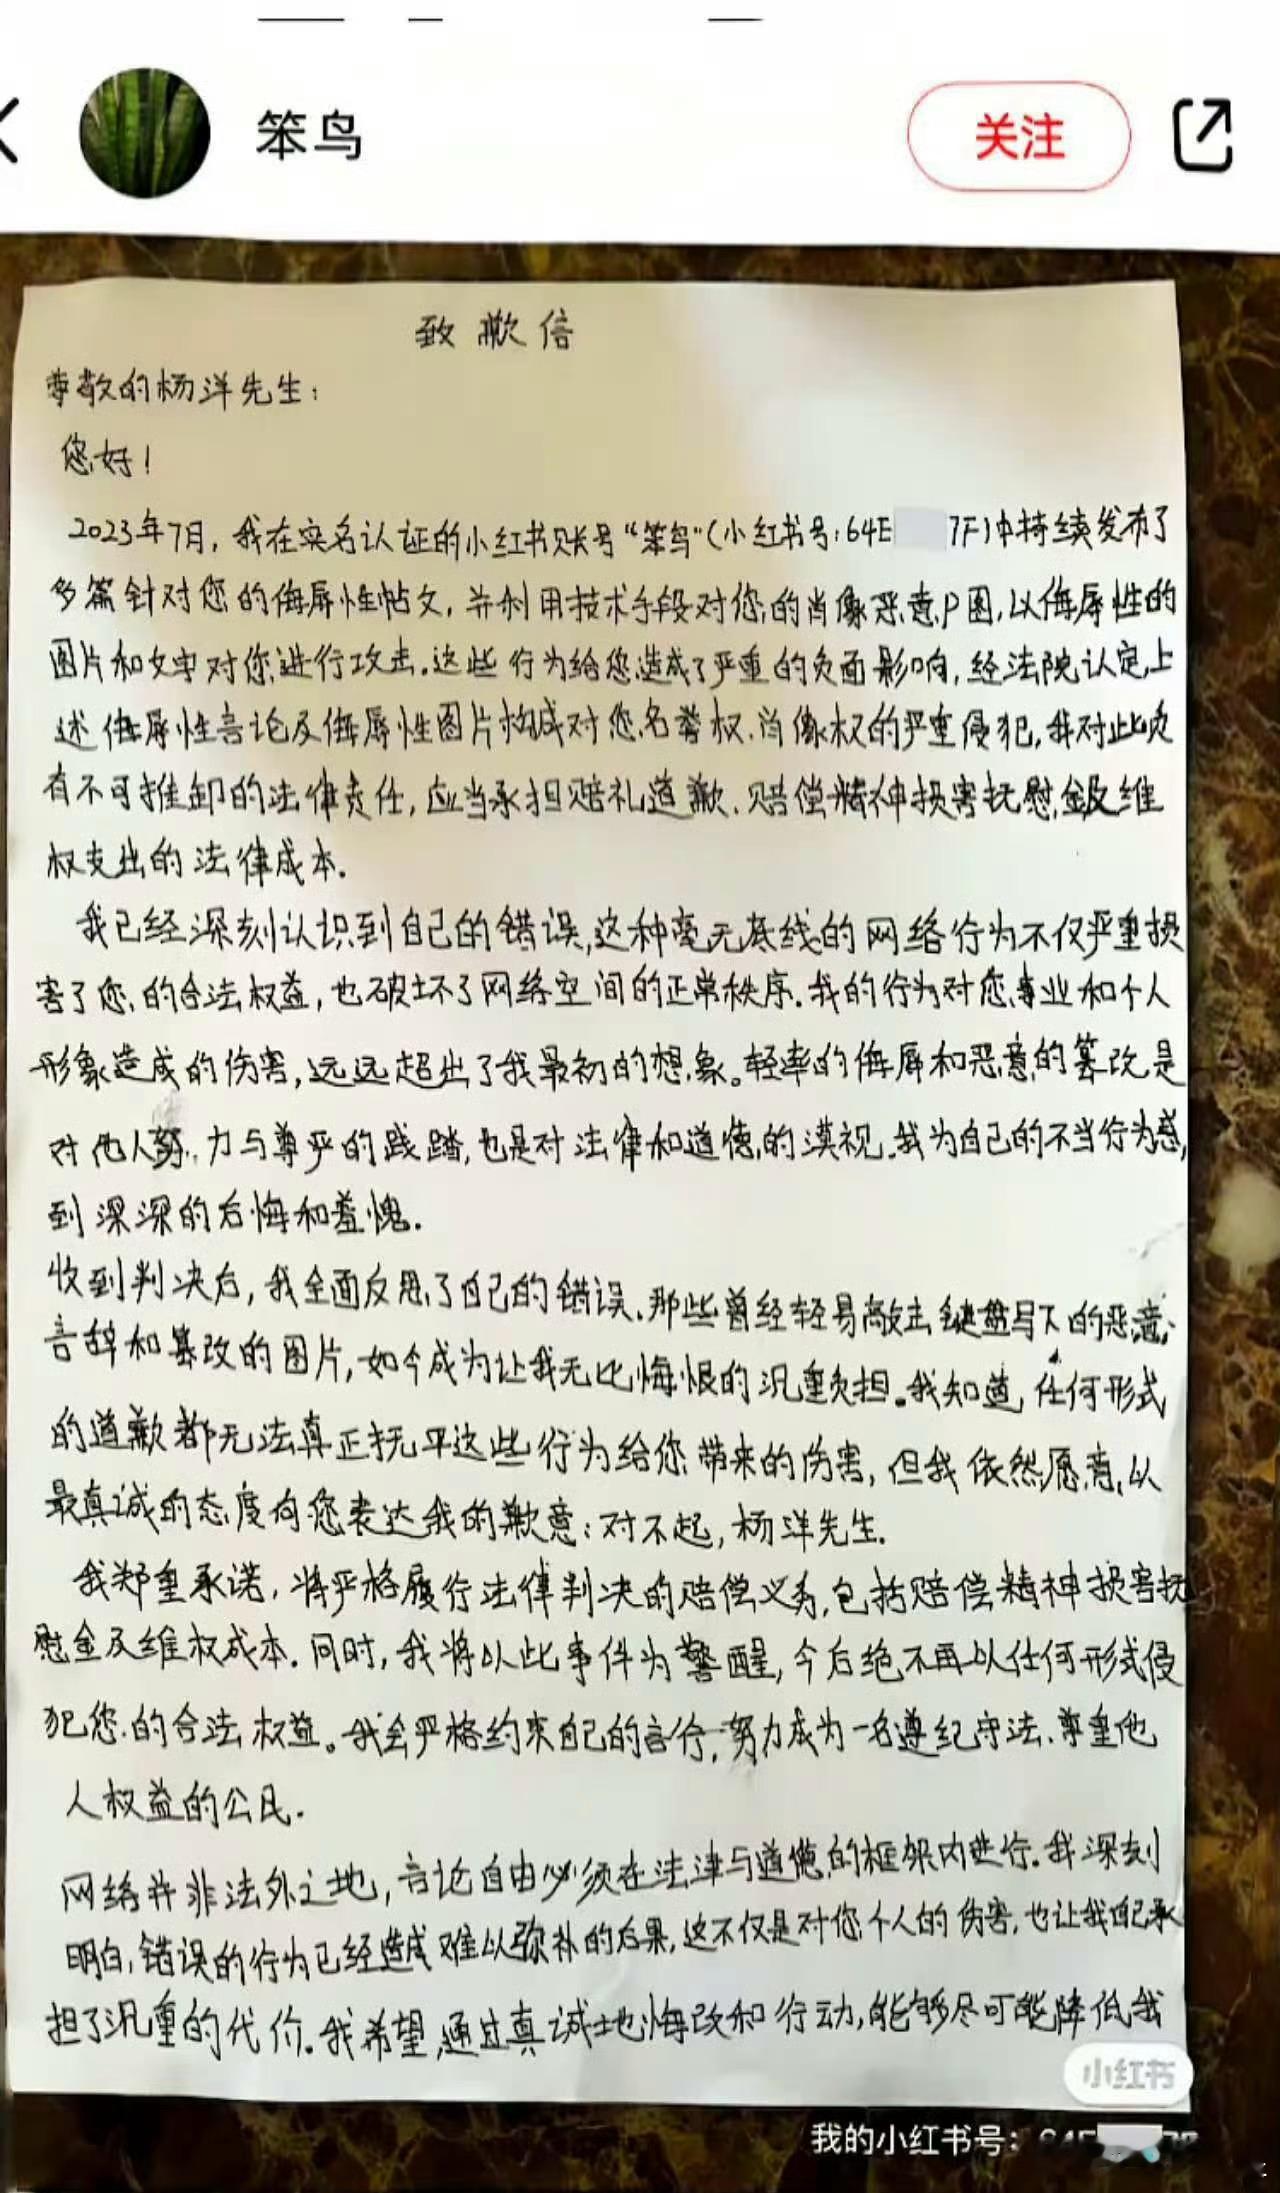 笨鸟
关注
致歉信
尊敬的杨洋先生:
您好!
2023年7月,我在实名认证的小红书账号"笨鸟"(小红书号:64E 7F)中持续发布了
多篇针对您的侮辱性帖文,并利用技术手段对您的肖像恶意P图,以侮辱性的
图片和文字对您进行攻击.这些行为给您造成了严重的负面影响,经法院认定上
述侮辱性言论及侮辱性图片构成对您名誉权、肖像权的严重侵犯,我对此负
有不可推卸的法律责任,应当承担赔礼道歉、赔偿精神损害抚慰金及维
权支出的法律成本.
我已经深刻认识到自己的错误,这种毫无底线的网络行为不仅严重损
害了您的合法权益,也破坏了网络空间的正常秩序.我的行为对您事业和个人
形象造成的伤害,远远超出了我最初的想象。轻率的侮辱和恶意的篡改是
对他人努力与尊严的践踏,也是对法律和道德的漠视.我为自己的不当行为感
到深深的后悔和羞愧.
收到判决后,我全面反思了自己的错误.那些曾经轻易敲击键盘写下的恶意
言辞和篡改的图片,如今成为让我无比悔恨的沉重负担。我知道,任何形式
的道歉都无法真正抚平这些行为给您带来的伤害,但我依然愿意,以
最真诚的态度向您表达我的歉意:对不起,杨洋先生.
我郑重承诺,将严格履行法律判决的赔偿义务,包括赔偿精神损害抚
慰金及维权成本.同时,我将以此事件为警醒,今后绝不再以任何形式侵
犯您的合法权益。我会严格约束自己的言行,努力成为一名遵纪守法、尊重他
人权益的公民.
网络并非法外之地,言论自由必须在法律与道德的框架内进行.我深刻
明白,错误的行为已经造成难以弥补的后果,这不仅是对您个人的伤害,也让我自己承
担了沉重的代价.我希望,通过真诚地悔改和行动,能够尽可能降低我
小红书
我的小红书号:64E